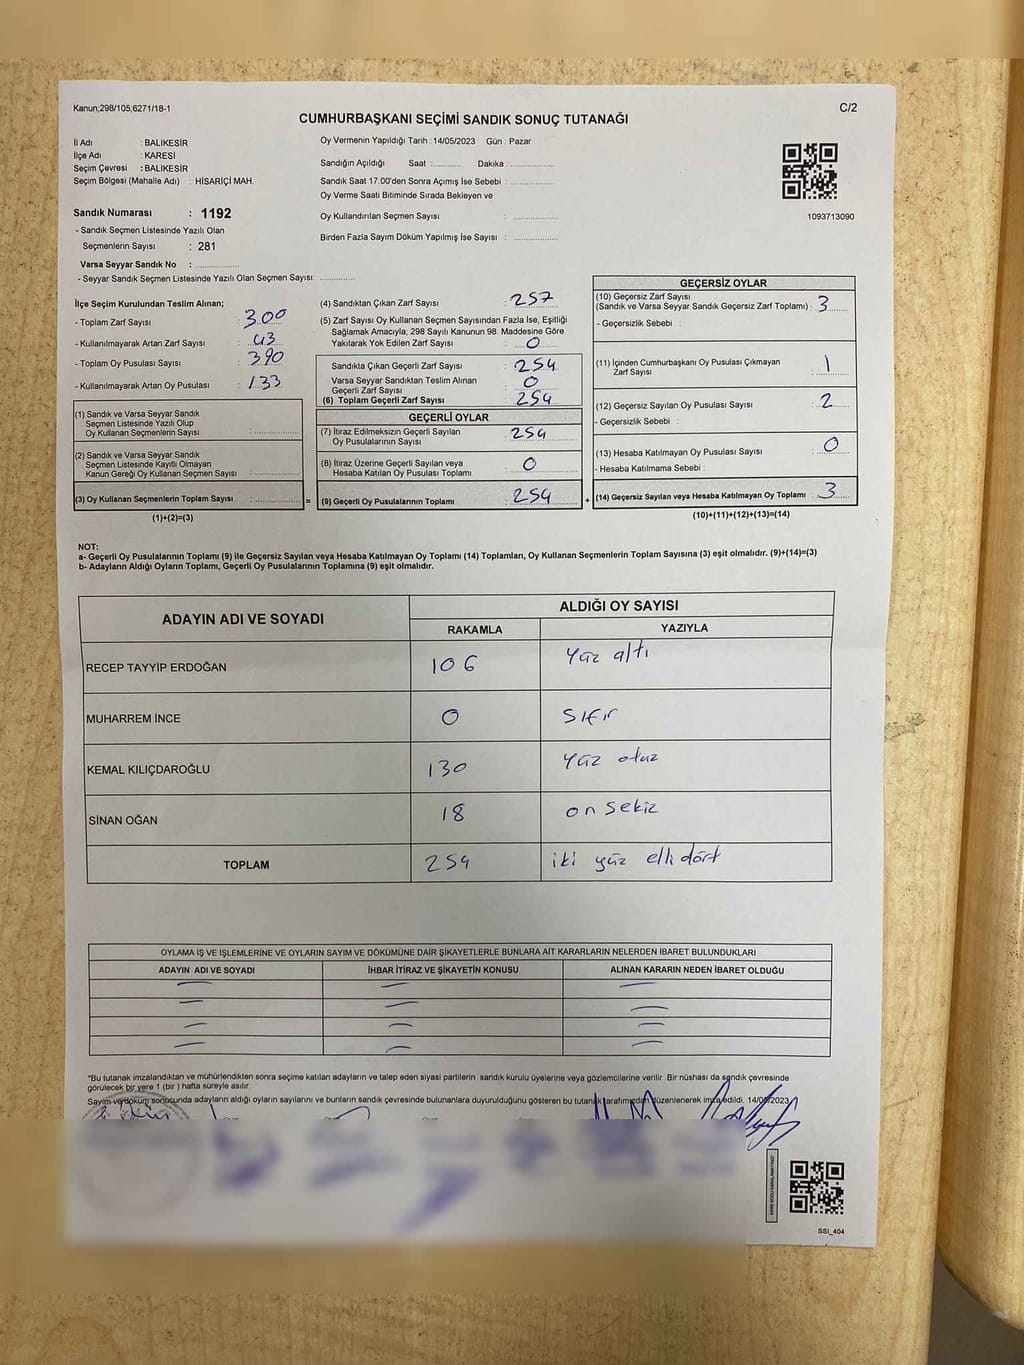 Kanun;298/105,6271/18-1
C/2
CUMHURBAŞKANI SEÇİMİ SANDIK SONUÇ TUTANAĞI
İl Adı : BALIKESİR
İlçe Adı : KARESİ
Seçim Çevresi : BALIKESİR
Seçim Bölgesi (Mahalle Adı) : HİSARİÇİ MAH.
Sandık Numarası : 1192
- Sandık Seçmen Listesinde Yazılı Olan
Seçmenlerin Sayısı : 281
Varsa Seyyar Sandık No : ..............
- Seyyar Sandık Seçmen Listesinde Yazılı Olan Seçmen Sayısı: ............
Oy Vermenin Yapıldığı Tarih : 14/05/2023 Gün : Pazar
Sandığın Açıldığı Saat : .......... Dakika : ..............
Sandık Saat 17:00'den Sonra Açımış İse Sebebi : ..............
Oy Verme Saati Bitiminde Sırada Bekleyen ve
Oy Kullandırılan Seçmen Sayısı : ..............
Birden Fazla Sayım Döküm Yapılmış İse Sayısı : ..............
1093713090
İlçe Seçim Kurulundan Teslim Alınan;
- Toplam Zarf Sayısı : 300
- Kullanılmayarak Artan Zarf Sayısı : 43
- Toplam Oy Pusulası Sayısı : 390
- Kullanılmayarak Artan Oy Pusulası : 133
(1) Sandık ve Varsa Seyyar Sandık
Seçmen Listesinde Yazılı Olup
Oy Kullanan Seçmenlerin Sayısı : ..............
(2) Sandık ve Varsa Seyyar Sandık
Seçmen Listesinde Kayıtlı Olmayan
Kanun Gereği Oy Kullanan Seçmen Sayısı : ..............
(3) Oy Kullanan Seçmenlerin Toplam Sayısı : ..............
(1)+(2)=(3)
=
(4) Sandıktan Çıkan Zarf Sayısı : 257
(5) Zarf Sayısı Oy Kullanan Seçmen Sayısından Fazla İse, Eşitliği
Sağlamak Amacıyla, 298 Sayılı Kanunun 98. Maddesine Göre
Yakılarak Yok Edilen Zarf Sayısı : 0
Sandıkta Çıkan Geçerli Zarf Sayısı : 254
Varsa Seyyar Sandıktan Teslim Alınan
Geçerli Zarf Sayısı : 0
(6) Toplam Geçerli Zarf Sayısı : 254
GEÇERLİ OYLAR
(7) İtiraz Edilmeksizin Geçerli Sayılan
Oy Pusulalarının Sayısı : 254
(8) İtiraz Üzerine Geçerli Sayılan veya
Hesaba Katılan Oy Pusulası Toplamı : 0
(9) Geçerli Oy Pusulalarının Toplamı : 254
+
GEÇERSİZ OYLAR
(10) Geçersiz Zarf Sayısı
(Sandık ve Varsa Seyyar Sandık Geçersiz Zarf Toplamı) : 3
- Geçersizlik Sebebi :
(11) İçinden Cumhurbaşkanı Oy Pusulası Çıkmayan
Zarf Sayısı : 1
(12) Geçersiz Sayılan Oy Pusulası Sayısı : 2
- Geçersizlik Sebebi :
(13) Hesaba Katılmayan Oy Pusulası Sayısı : 0
- Hesaba Katılmama Sebebi :
(14) Geçersiz Sayılan veya Hesaba Katılmayan Oy Toplamı : 3
(10)+(11)+(12)+(13)=(14)
NOT:
a- Geçerli Oy Pusulalarının Toplamı (9) ile Geçersiz Sayılan veya Hesaba Katılmayan Oy Toplamı (14) Toplamları, Oy Kullanan Seçmenlerin Toplam Sayısına (3) eşit olmalıdır. (9)+(14)=(3)
b- Adayların Aldığı Oyların Toplamı, Geçerli Oy Pusulalarının Toplamına (9) eşit olmalıdır.
ADAYIN ADI VE SOYADI
ALDIĞI OY SAYISI
RAKAMLA YAZIYLA
RECEP TAYYİP ERDOĞAN 106 Yüz altı
MUHARREM İNCE 0 Sıfır
KEMAL KILIÇDAROĞLU 130 Yüz otuz
SİNAN OĞAN 18 on sekiz
TOPLAM 254 iki yüz elli dört
OYLAMA İŞ VE İŞLEMLERİNE VE OYLARIN SAYIM VE DÖKÜMÜNE DAİR ŞİKAYETLERLE BUNLARA AİT KARARLARIN NELERDEN İBARET BULUNDUKLARI
ADAYIN ADI VE SOYADI İHBAR İTİRAZ VE ŞİKAYETİN KONUSU ALINAN KARARIN NEDEN İBARET OLDUĞU
*Bu tutanak imzalandıktan ve mühürlendikten sonra seçime katılan adayların ve talep eden siyasi partilerin sandık kurulu üyelerine veya gözlemcilerine verilir .Bir nüshası da sandık çevresinde
görülecek bir yere 1 (bir ) hafta süreyle asılır.
Sayım ve döküm sonucunda adayların aldığı oyların sayılarını ve bunların sandık çevresinde bulunanlara duyurulduğunu gösteren bu tutanak tarafımızdan düzenlenerek imza edildi. 14/05/2023
SSI_404